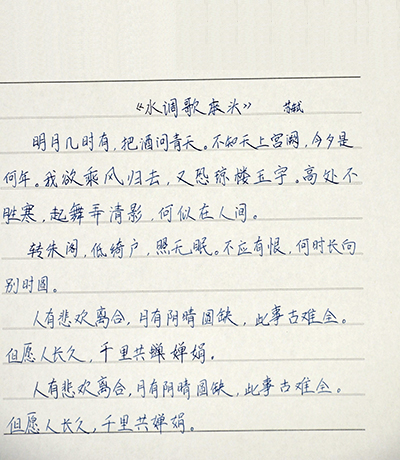 《水调歌头》 苏轼
明月几时有，把酒问青天。不知天上宫阙，今夕是
何年。我欲乘风归去，又恐琼楼玉宇。高处不
胜寒，起舞弄清影，何似在人间。
转朱阁，低绮户，照无眠。不应有恨，何时长向
别时圆。
人有悲欢离合，月有阴晴圆缺，此事古难全。
但愿人长久，千里共蝉婵娟。
人有悲欢离合，月有阴晴圆缺，此事古难全。
但愿人长久，千里共婵娟。